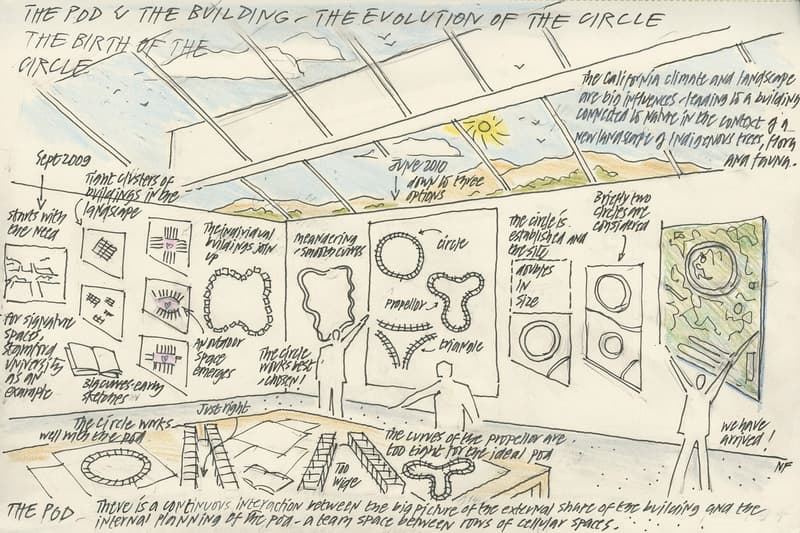 THE POD & THE BUILDING - THE EVOLUTION OF THE CIRCLE
THE BIRTH OF THE
CIRCLE
The California climate and landscape
are big influences - leading to a building
connected to nature in the context of a
new landscape of indigenous trees, flora
and fauna.
Sept 2009
Tight clusters of
buildings in the
landscape
starts with
the need
for signature
space,
Stamford
University
as an
example
Big curves - early
sketches
An outdoor
space
emerges
The individual
buildings join
up
meandering
- smooth curves
The circle
works best
- chosen!
June 2010
down to three
options
circle
propellor
triangle
The circle is
established and
the site
doubles
in
size
Briefly two
circles are
considered
we have
arrived!
NF
The circle works
well with the pod
Just right
Too
wide
The curves of the propellor are
too tight for the ideal pod
THE POD - There is a continuous interaction between the big picture of the external share of the building and the
internal planning of the pod - a team space between rows of cellular spaces.